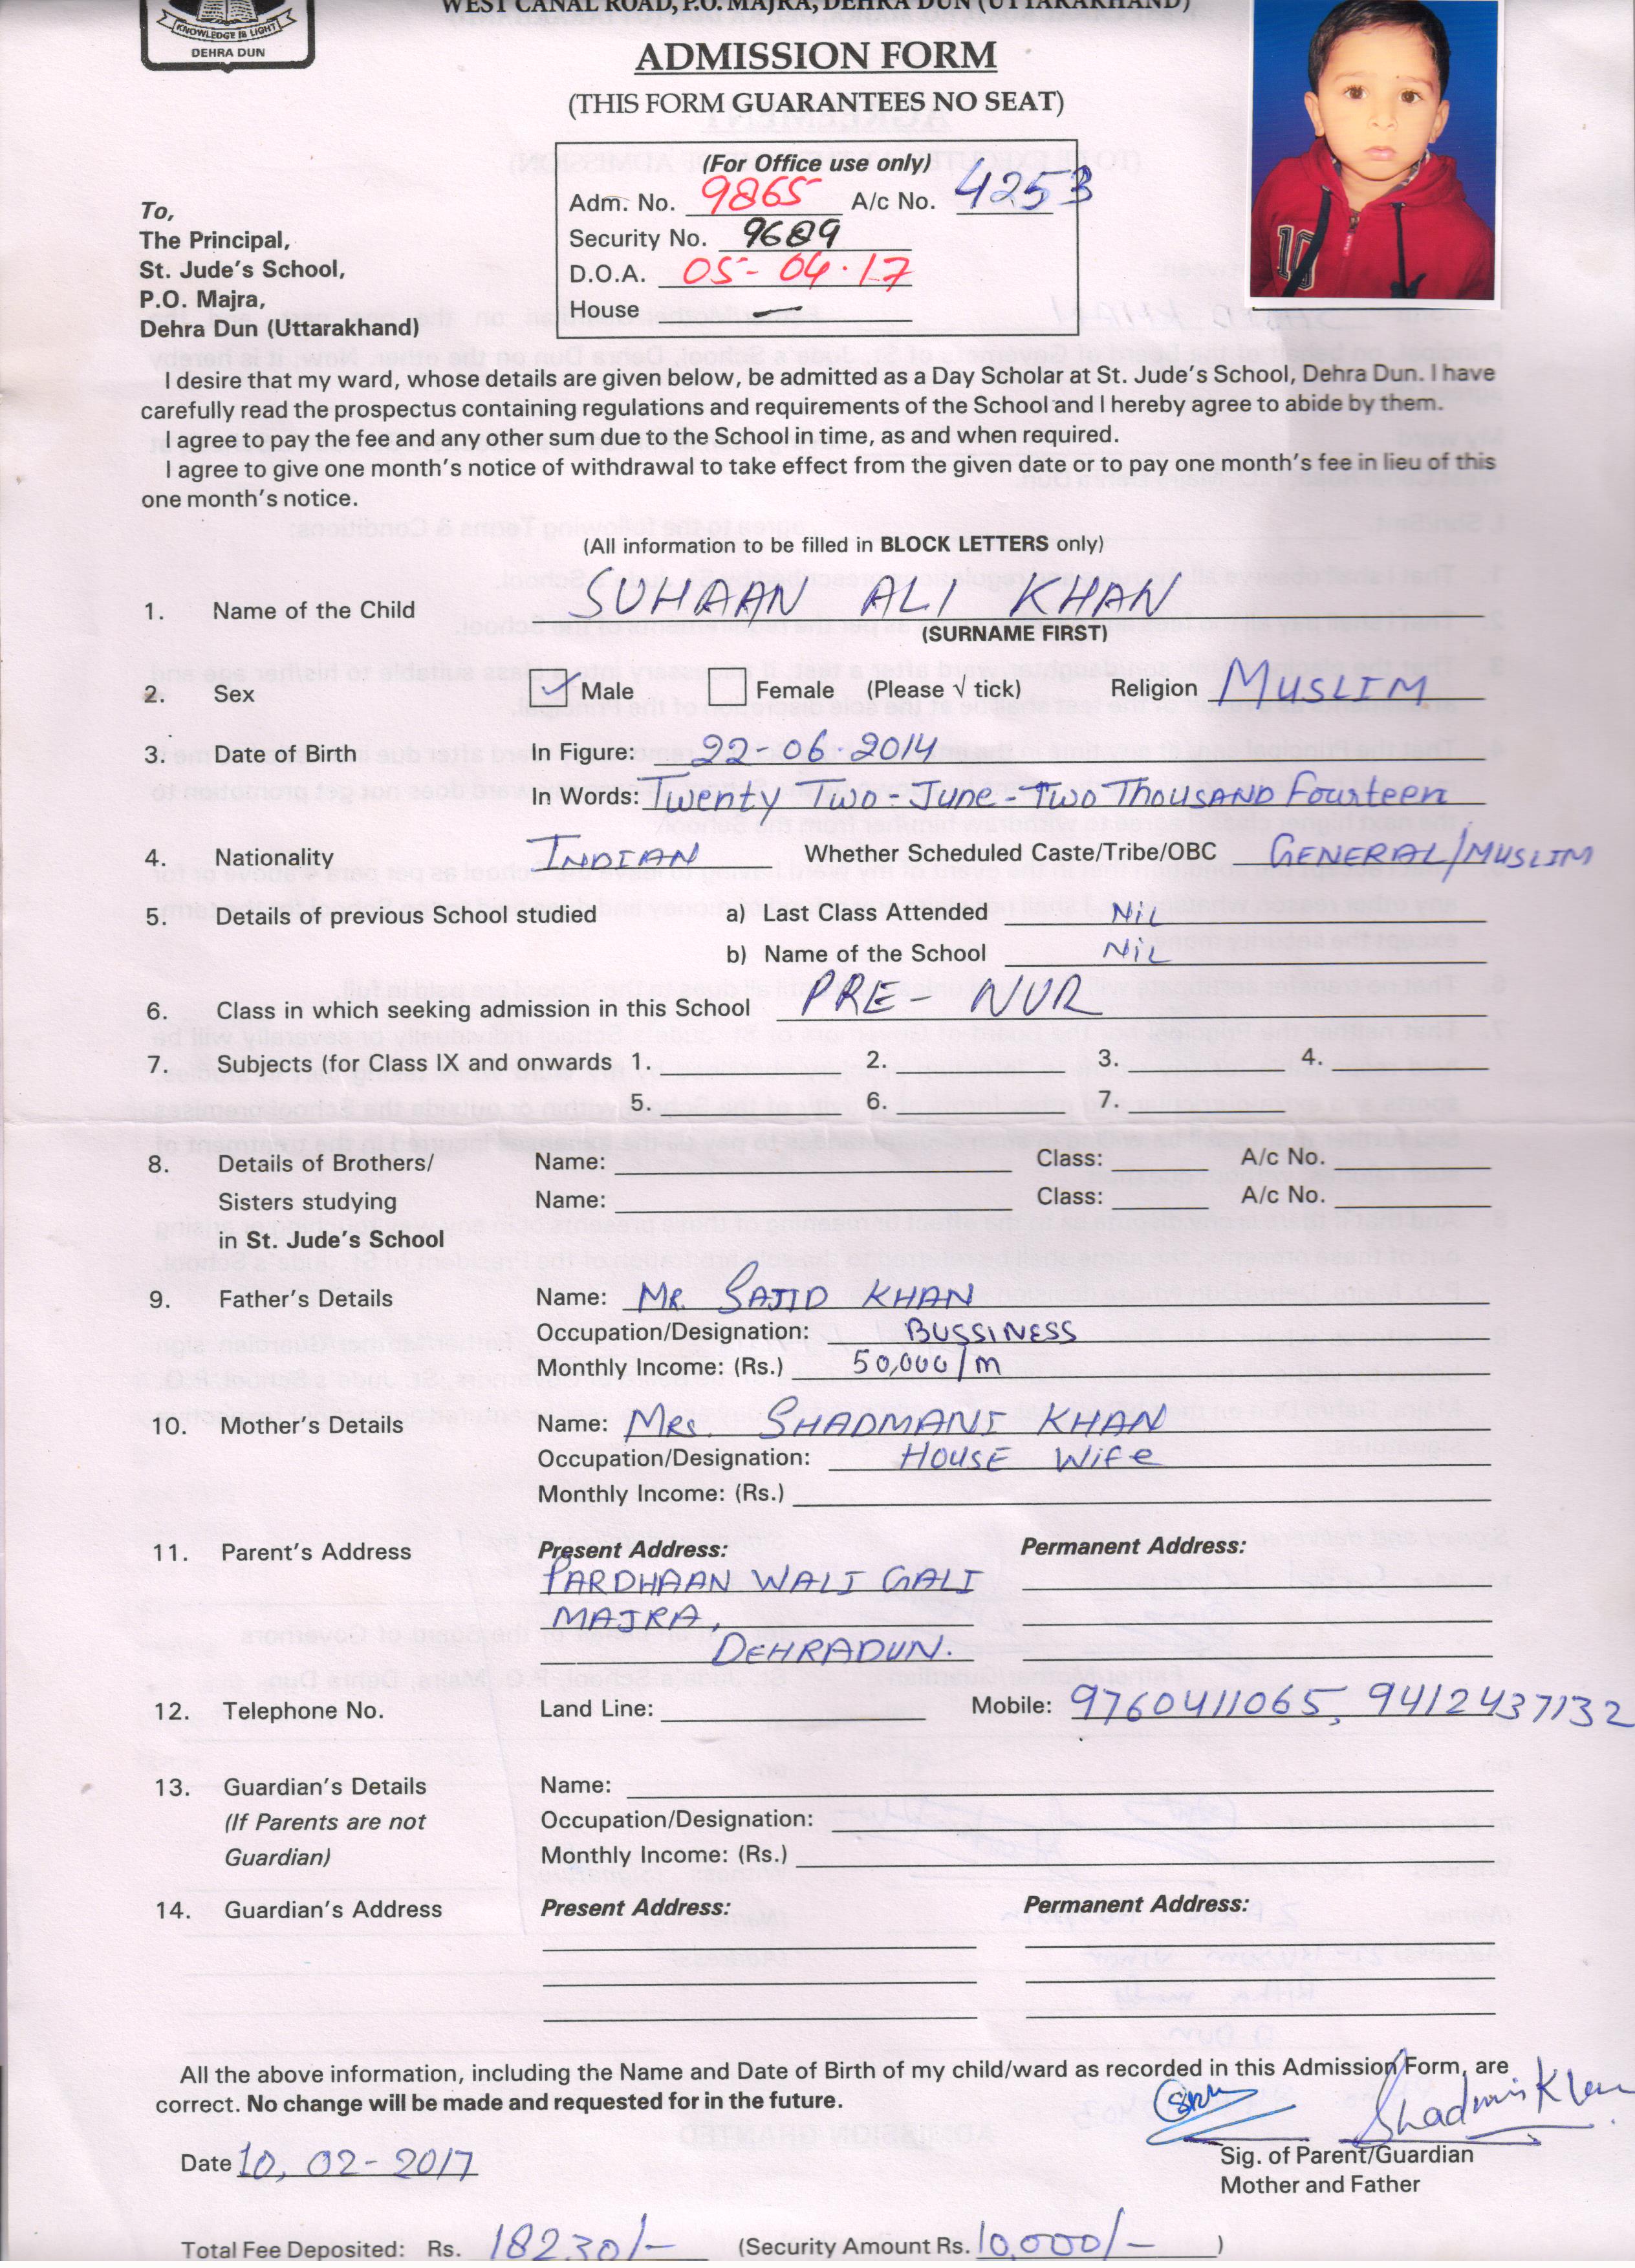 WEST CANAL ROAD, P.O. MAJRA, DEHRA DUN (UTTARAKHAND)
KNOWLEDGE IS LIGHT
DEHRA DUN
ADMISSION FORM
(THIS FORM GUARANTEES NO SEAT)
(For Office use only)
Adm. No. 9865 A/c No. 4253
Security No. 9689
D.O.A. 05-04-17
House —
To,
The Principal,
St. Jude's School,
P.O. Majra,
Dehra Dun (Uttarakhand)
I desire that my ward, whose details are given below, be admitted as a Day Scholar at St. Jude's School, Dehra Dun. I have
carefully read the prospectus containing regulations and requirements of the School and I hereby agree to abide by them.
I agree to pay the fee and any other sum due to the School in time, as and when required.
I agree to give one month's notice of withdrawal to take effect from the given date or to pay one month's fee in lieu of this
one month's notice.
(All information to be filled in BLOCK LETTERS only)
1. Name of the Child SUHAAN ALI KHAN
(SURNAME FIRST)
2. Sex ✓ Male Female (Please √ tick) Religion MUSLIM
3. Date of Birth In Figure: 22-06-2014
In Words: Twenty Two-June-Two ThouSAND Fourteen
4. Nationality INDIAN Whether Scheduled Caste/Tribe/OBC GENERAL/MUSLIM
5. Details of previous School studied a) Last Class Attended NiL
b) Name of the School NiL
6. Class in which seeking admission in this School PRE-NUR
7. Subjects (for Class IX and onwards 1. 2. 3. 4.
5. 6. 7.
8. Details of Brothers/ Name: Class: A/c No.
Sisters studying Name: Class: A/c No.
in St. Jude's School
9. Father's Details Name: MR. SAJID KHAN
Occupation/Designation: BUSSINESS
Monthly Income: (Rs.) 50,000/m
10. Mother's Details Name: MRs. SHADMANI KHAN
Occupation/Designation: HOUSE Wife
Monthly Income: (Rs.)
11. Parent's Address Present Address: Permanent Address:
PARDHAAN WALI GALI
MAJRA,
DEHRADUN.
12. Telephone No. Land Line: Mobile: 9760411065, 9412437132
13. Guardian's Details Name:
(If Parents are not Occupation/Designation:
Guardian) Monthly Income: (Rs.)
14. Guardian's Address Present Address: Permanent Address:
All the above information, including the Name and Date of Birth of my child/ward as recorded in this Admission Form, are
correct. No change will be made and requested for in the future.
Shadmani Khan
Date 10, 02-2017
Sig. of Parent/Guardian
Mother and Father
Total Fee Deposited: Rs. 18230/- (Security Amount Rs. 10,000/- )